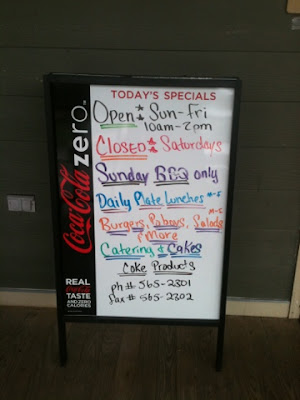 TODAY'S SPECIALS
Open Sun-Fri
10am-2pm
CLOSED Saturdays
Sunday BBQ only
Daily Plate Lunches M-F
M-F
Burgers, Poboys, Salads
& More
Catering & Cakes
Coke Products
ph# 565-2301
fax# 565-2302
Coca-Cola zero
REAL
Coca-Cola
TASTE
AND ZERO
CALORIES